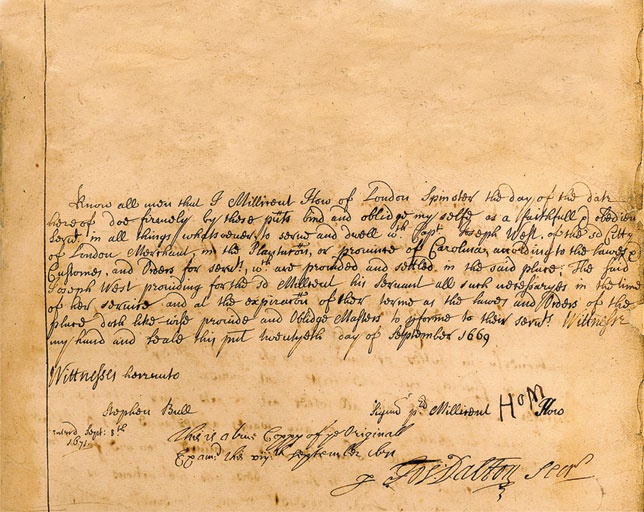 Know all men that I Millisent How of London Spinster the day of the date
hereof doe firmely by these pnts bind and oblidge my selfe as a faithfull & obedient
Servt in all things whatsoever, to serve and dwell wth Capt. Joseph West, of the sd Citty
of London Merchant, in the Plantation, or province of Carolina, according to the lawes
Customes, and Orders for servts wch are provided and setled in the said place. The said
Joseph West providing for the sd Millisent his servant all such necessaryes in the time
of her service and at the expiration of her terme as the lawes and Orders of the
place doth like wise provide and Oblidge Masters to pforme to their servts. Wittnesse
my hand and seale this pnt twentyeth day of September 1669
Wittnesses hereunto
Stephen Bull
Millisent HoM How
Sept: 8th
1671
This is a true Coppy of ye Originall
Examd this September 1671
Jos Dalton Secr